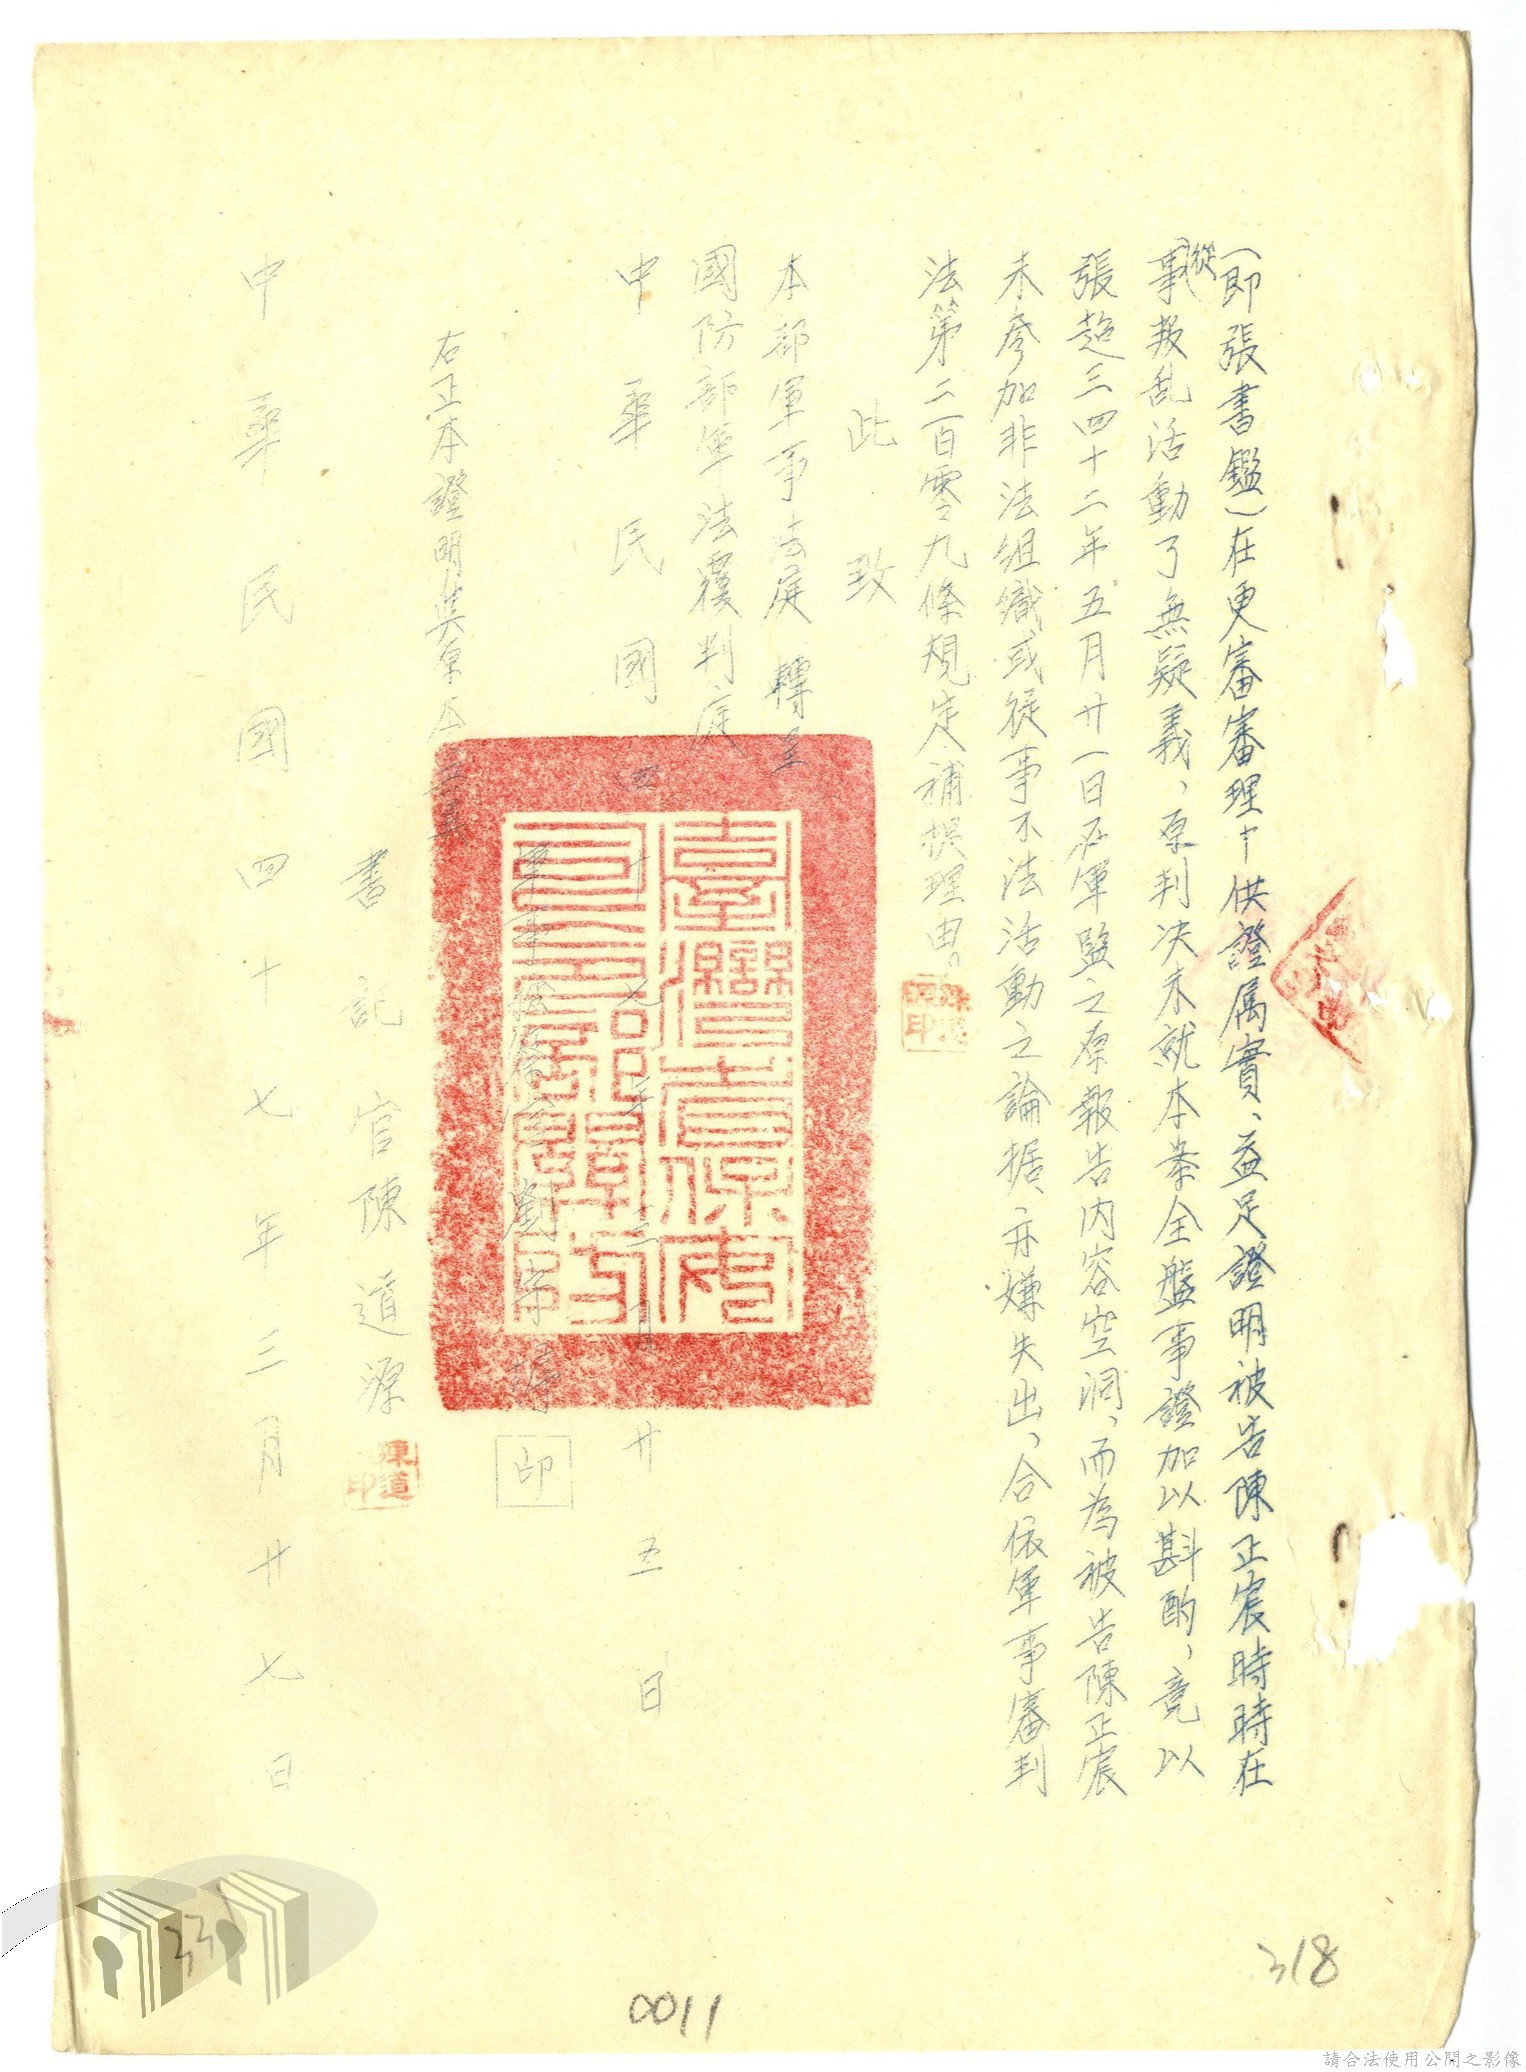 (即張書鑑)在更審審理中供證属實、益足證明被告陳正宸時時在
從事叛乱活動了無疑義、原判决未就本案全盤事證加以斟酌、竟以
張超三四十二年五月廿一日在軍監之原報告内容空洞、而為被告陳正宸
未參加非法組織或從事不法活動之論据、亦嫌失出、合依軍事審判
法第二百零九條規定補提理由。
此致
本部軍事法庭 轉呈
國防部軍法覆判庭
中華民國四十七年三月廿五日
軍事檢察官劉宗
印
右正本證明與原本無異
書記官陳道源
陳道
印
中華民國四十七年三月廿七日
臺灣省保安司令部關防
331
0011
318
請合法使用公開之影像